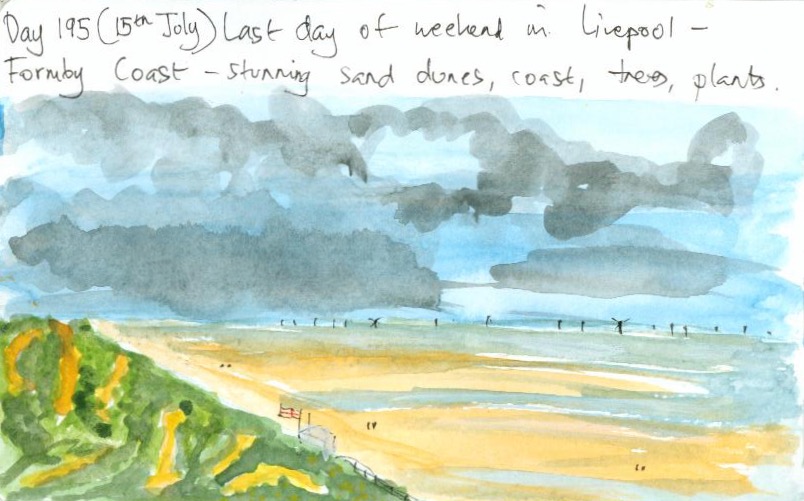 Day 195 (15th July) Last day of weekend in Liverpool -
Formby Coast - stunning sand dunes, coast, trees, plants.